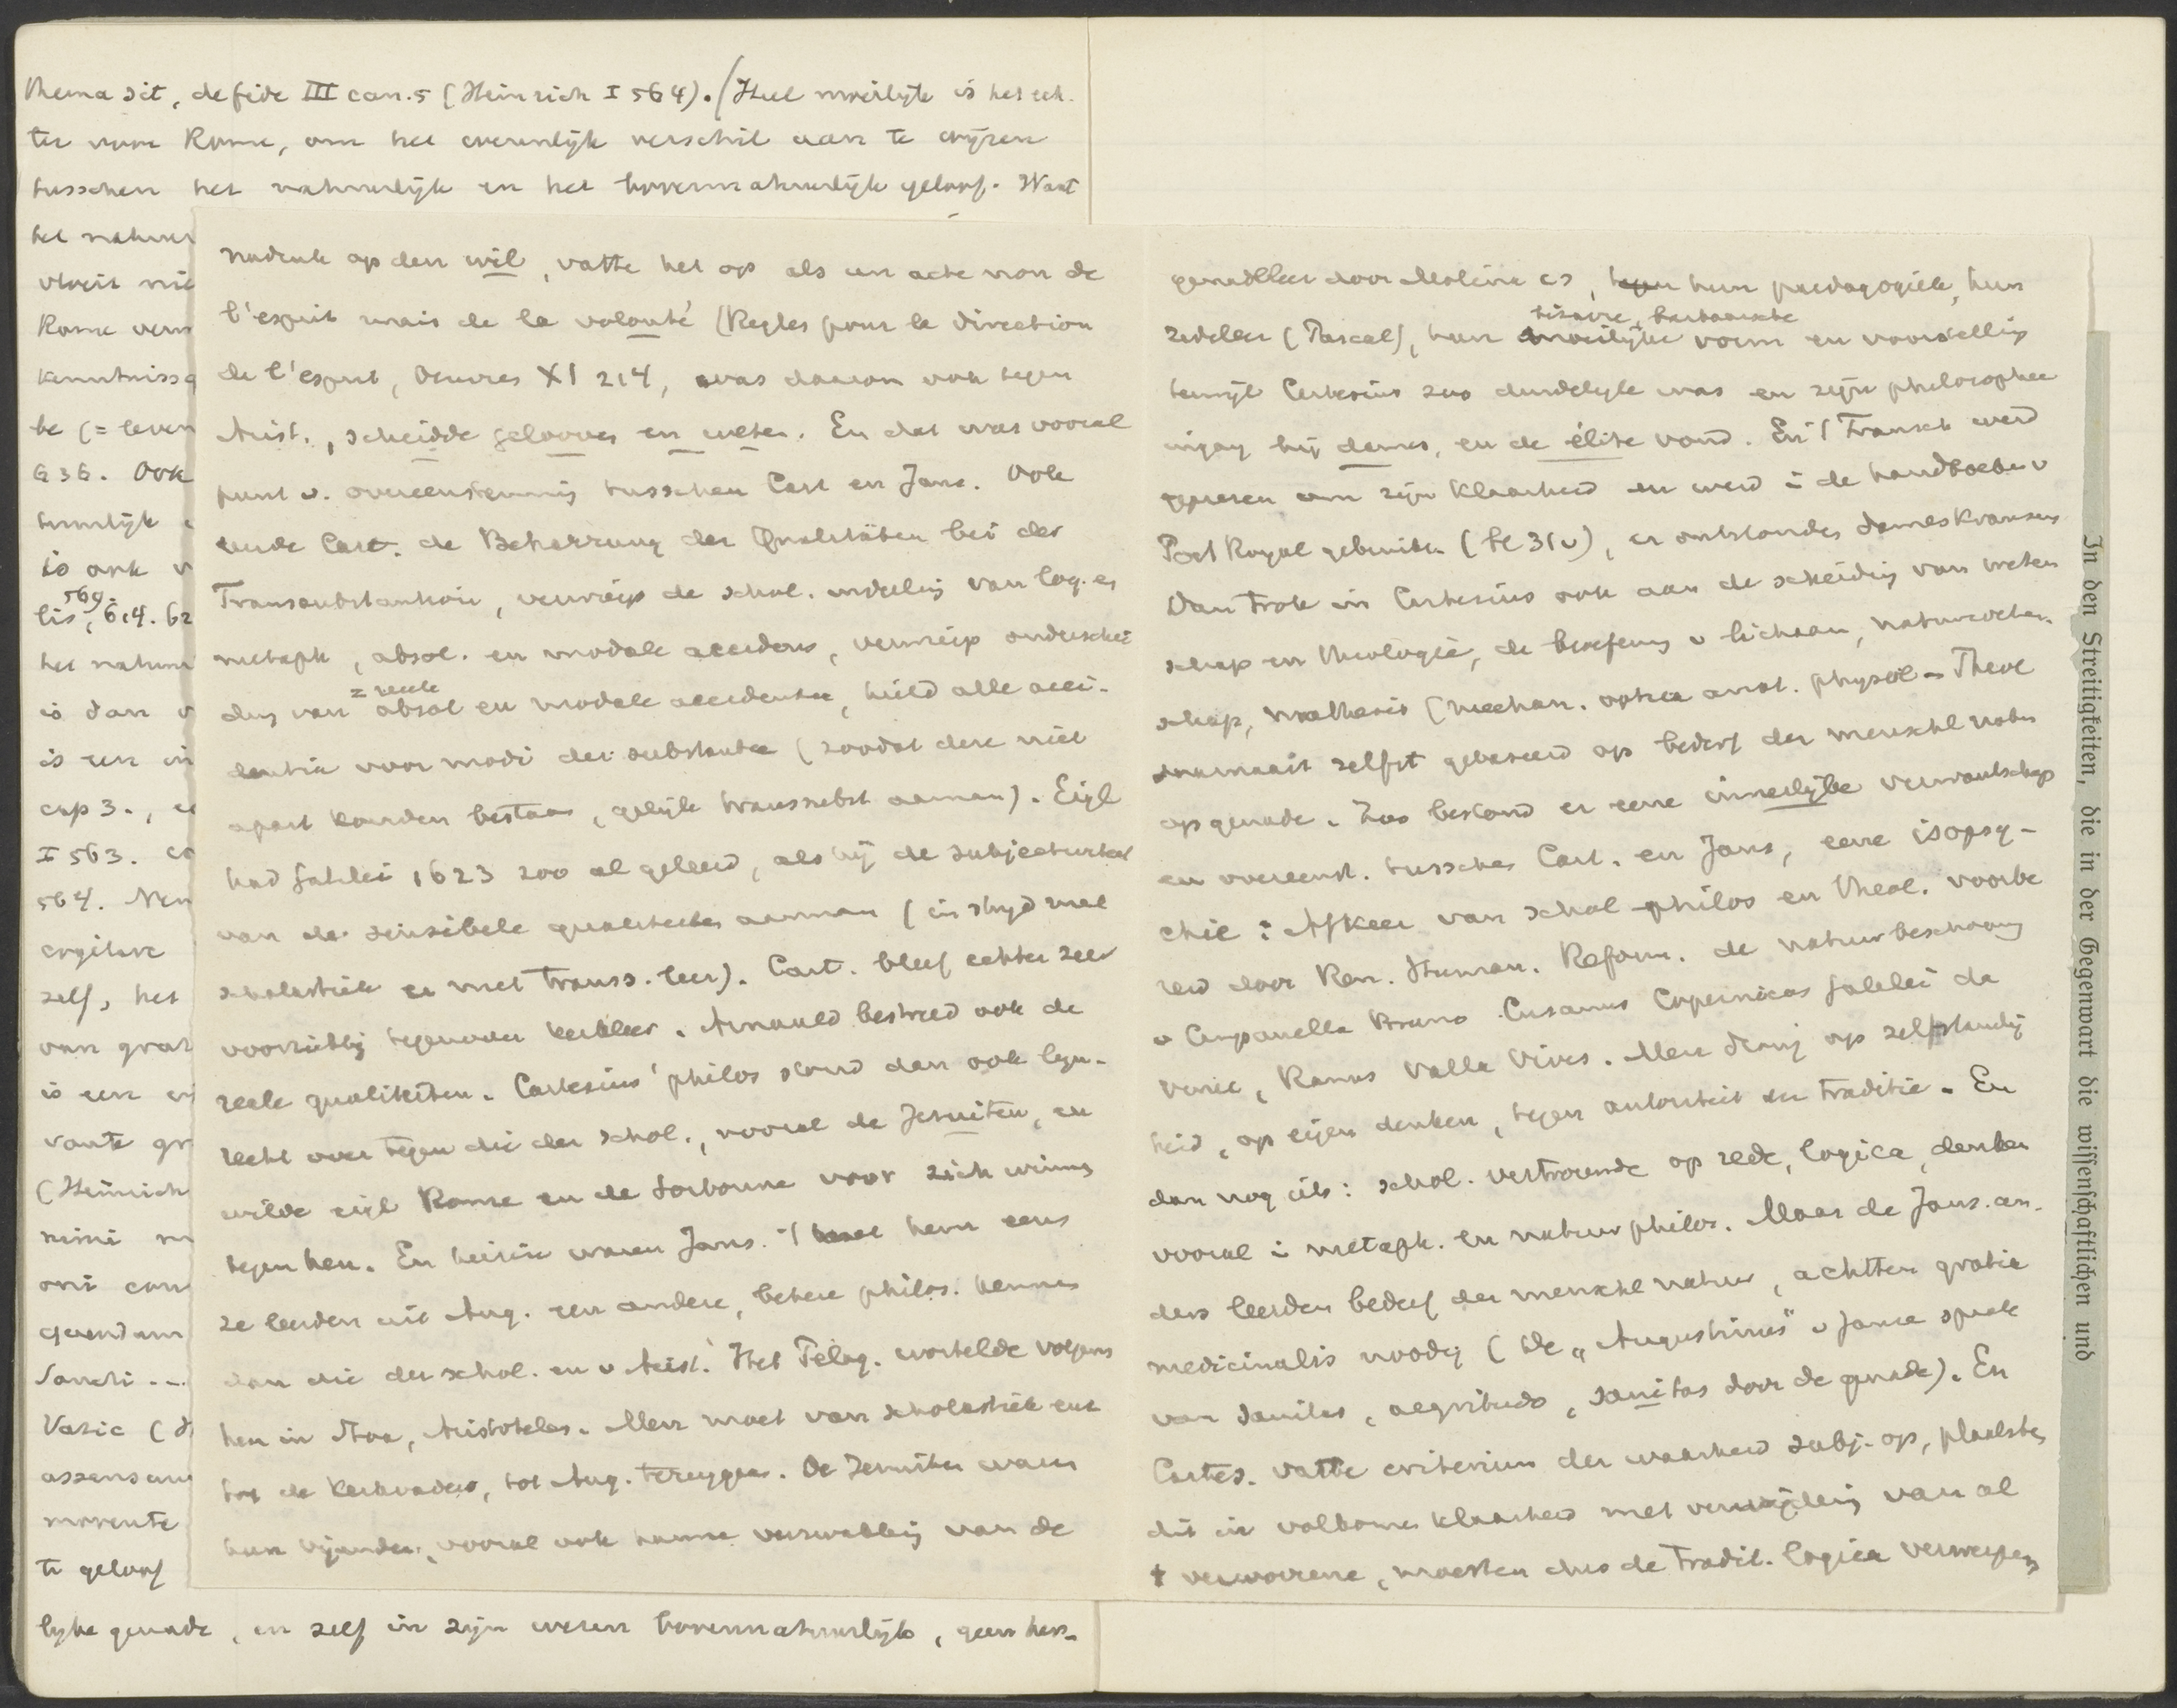 thema sit, de fide III can. 5 (Heinrich I 564). / Heel moeilijk is het ech-
ter voor Rome, om het wezenlijk verschil aan te wijzen
tusschen het natuurlijk en het bovennatuurlijk geloof. Want
het natuur
vloeit nie
Rome vern
kenntnissq
be (= leven
636. Ook
tuurlijk
is ook v
569.
lis, 614. 62
het natuur
is dan v
is een in
cap 3., e
I 563. co
564. Men
cogitare
zelf, het
van grat
is een
vante gr
(Heinrich
nisi
oni con
quendum
Sancti ...
Vatic (
assensum
movente
te geloof
lijke genade, en zelf in zijn wezen bovennatuurlijk, geen her-
nadruk op den wil, vatte het op als een acte non de
l'esprit mais de la volonté (Regles pour la direction
de l'esprit, Oeuvres XI 214, was daarom ook tegen
Arist., scheidde gelooven en weten. En dat was vooral
punt v. overeenstemming tusschen Cart en Jans. Ook
Cart. de Beharrung der Qualitäten bei der
Transsubstantiatie, verwierp de schol. indeeling van log. en
metaph, absol. en modale accidens, verwierp onderschei
= reele
ding van absol en modale accidentia, hield alle acci-
dentia voor modi der substantie (zoodat deze niet
apart konden bestaan, gelijk transsubst aannam). Eigl
had Galilei 1623 zoo al geleerd, als hij de subjectiviteit
van de sensibele qualiteiten aannam (in strijd met
scholastiek en met transs. leer). Cart. bleef echter zeer
voorzichtig tegenover kerkleer. Arnauld bestreed ook de
reele qualiteiten. Cartesius' philos stond dan ook lijn-
recht over tegen die der schol., vooral de Jezuiten, en
wilde eigl Rome en de Sorbonne voor zich winnen
tegen hen. En hierin waren Jans. 't met hem eens
ze leerden uit Aug. een andere, betere philos. kennen
dan die der schol. en v Arist. Het Pelag. wortelde volgens
hen in Stoa, Aristoteles. Men moet van scholastiek enz
tot de Kerkvaders, tot Aug. teruggaan. De Jezuiten waren
hun vijanden, vooral ook hunne verzwakking van de
genadeleer door Molina es, hun paedagogiek, hun
bizarre, barbaarsche
zedeleer (Pascal), hun moeilijke vorm en voorstelling
terwijl Cartesius zoo duidelijk was en zijn philosophie
ingang bij dames, en de élite vond. En 't Fransch werd
geprezen om zijn klaarheid en werd i de handboeken v
Port Royal gebruikt (bl 31v), er ontstonden dameskransen
Dan trok in Cartesius ook aan de scheiding van weten
schap en theologie, de beoefening v lichaam, natuurweten-
schap, mathesis (mechan. optica anat. physiol - Theol
daarnaast zelfst gebaseerd op bederf der menschl natuur
op genade. Zoo bestond er eene innerlijke verwantschap
en overeenst. tusschen Cart. en Jans, eene isopsy-
chie: Afkeer van schol philos en theol. voorbe
reid door Ren. Human. Reform. de natuurbeschouwing
v Campanella Bruno Cusanus Copernicus Galilei da
Vinci, Ramus Valla Vives. Men drong op zelfstandig
heid, op eigen denken, tegen autoriteit en traditie. En
dan nog iets: schol. vertrouwde op rede, logica, denken
vooral i metaph. en natuurphilos. Maar de Jans. an-
ders leerden bederf der menschl natuur, achtten gratia
medicinalis noodig (De „Augustinus" v Janse sprak
van sanitas, aegritudo, sanitas door de genade). En
Cartes. vatte criterium der waarheid subj. op, plaatste
dit in volkomen klaarheid met vermijding van al
't verwarrene, moesten dus de tradit. logica verwerpen
In den Streitigkeiten, die in der Gegenwart die wissenschaftlichen und